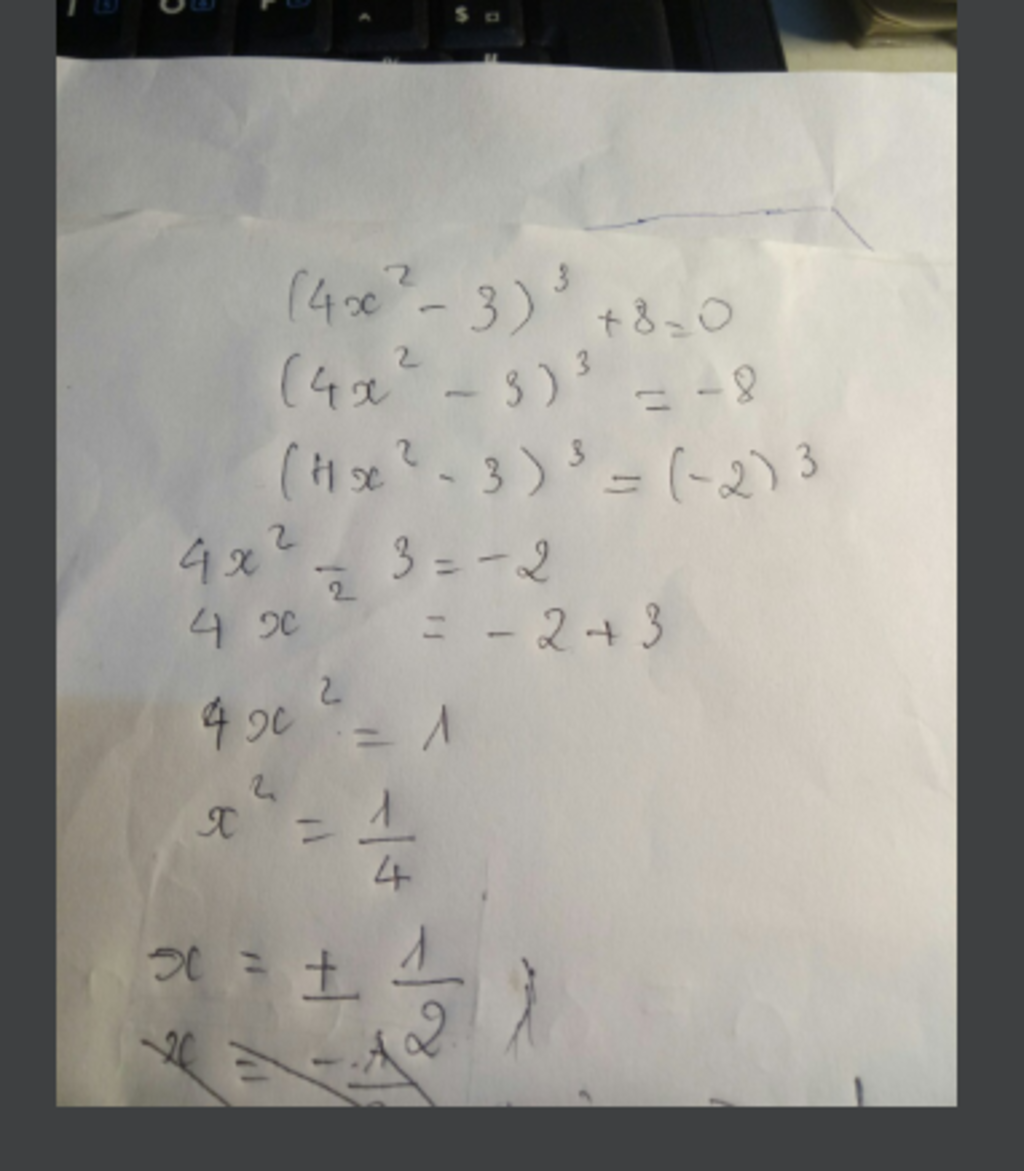 (4x² - 3)³ + 8 = 0
(4x² - 3)³ = - 8
(4x² - 3)³ = (-2)³
4x² - 3 = - 2
4x² = - 2 + 3
4x² = 1
x² = 1/4
x = ± 1/2
x = - 1